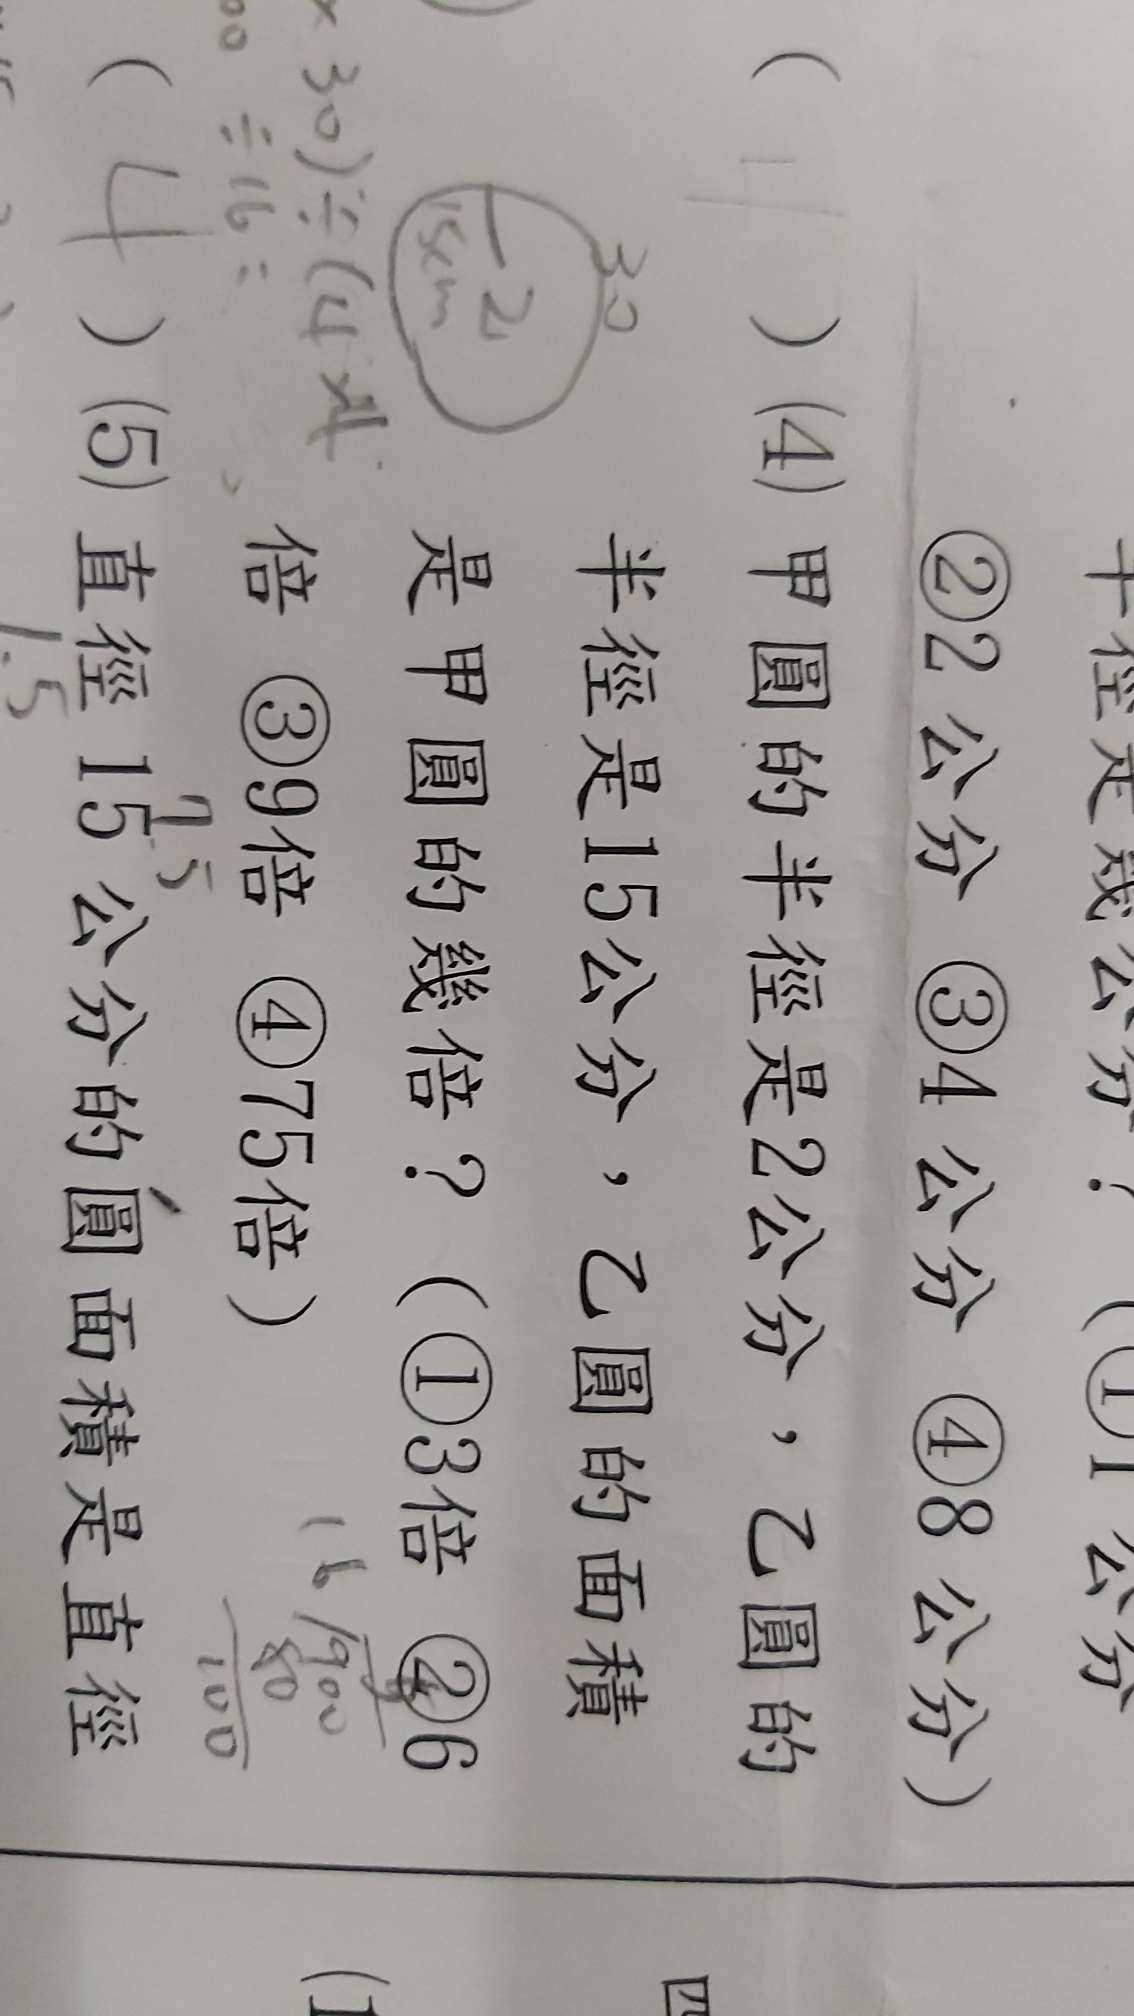 半徑是幾公分？（①1公分
②2公分 ③4公分 ④8公分）
（1）(4)甲圓的半徑是2公分，乙圓的
半徑是15公分，乙圓的面積
是甲圓的幾倍？（①3倍 ②6
倍 ③9倍 ④75倍）
30
2
15cm
30)÷(4×4
÷16=
16 900
80
100
（4）(5)直徑15公分的圓面積是直徑
7.5
1.5
四
(1